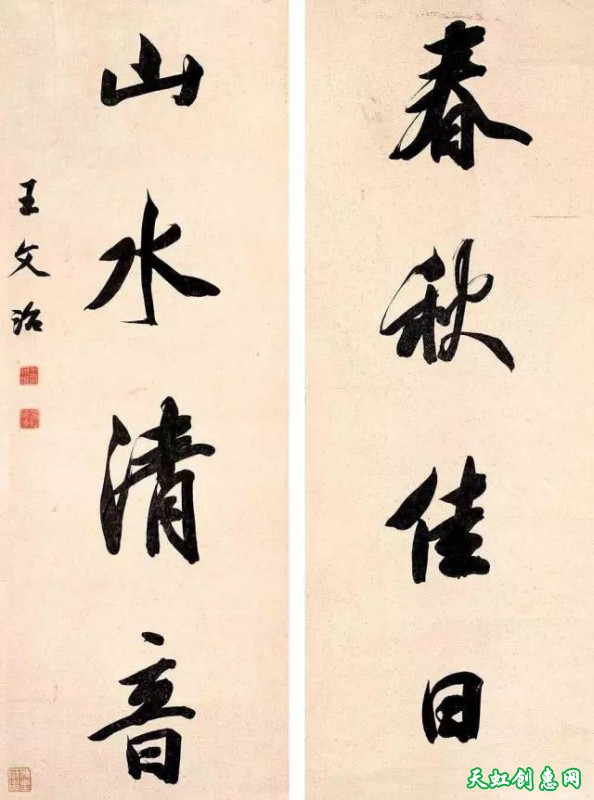 春秋佳日
山水清音
王文治
天虹创惠网